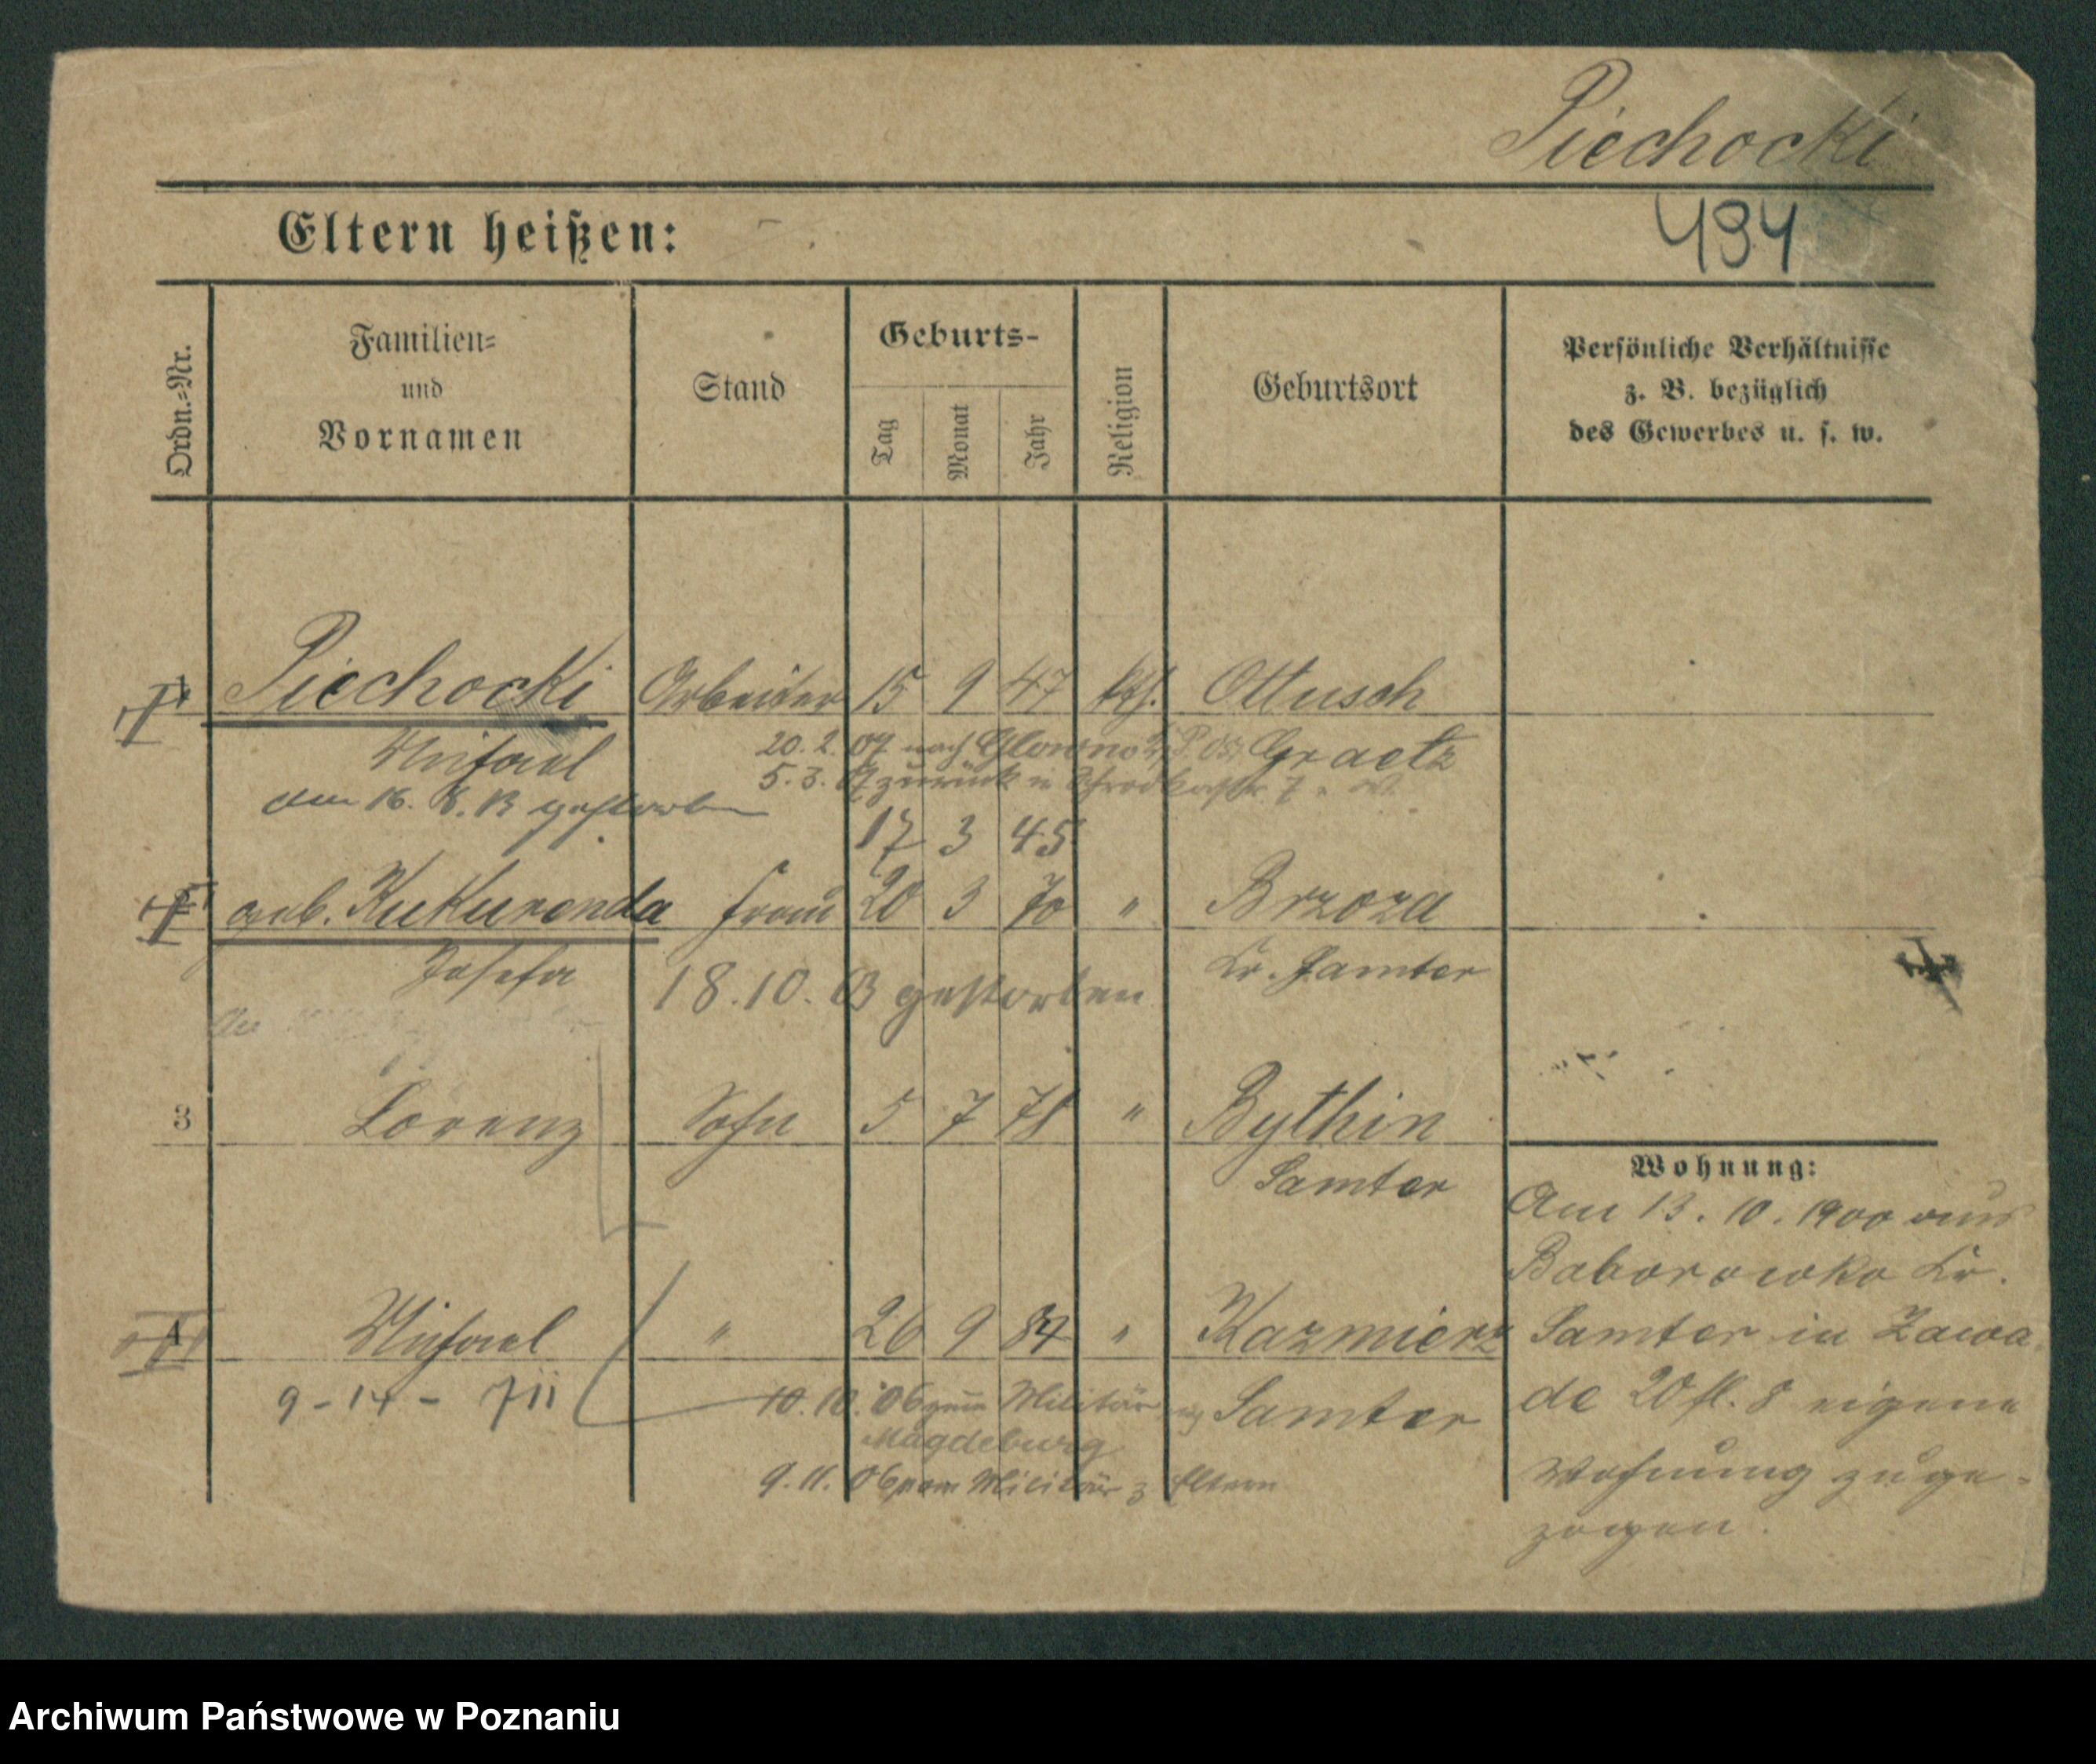 Piechocki
494
Eltern heißen:
Ordn.=Nr.
Familien=
und
Vornamen
Stand
Geburts-
Tag
Monat
Jahr
Religion
Geburtsort
Persönliche Verhältnisse
z. B. bezüglich
des Gewerbes u. s. w.
Piechocki Arbeiter 15 9 47 kth. Ottusch
Michael 20. 2. 07 nach Glowno Graetz
5. 3. 07 zurück in Schrodkastr. 7
am 16. 8. 13 gestorben
17 3 45
geb. Kukurenda Frau 20 3 70 " Brzoza
Josefa Kr. Samter
18. 10. 03 gestorben
3 Lorenz Sohn 5 7 78 " Bythin
Samter
4 Michael " 26 9 84 " Kazmierz
9 - 14 - 711 Samter
10. 10. 06 zum Militär
Magdeburg
9. 11. 06 vom Militär z Eltern
Wohnung:
Am 13. 10. 1900 aus
Baborowko Kr.
Samter in Zawa
de 20 fl. 8 eigene
Wohnung zuge-
zogen.
Archiwum Państwowe w Poznaniu